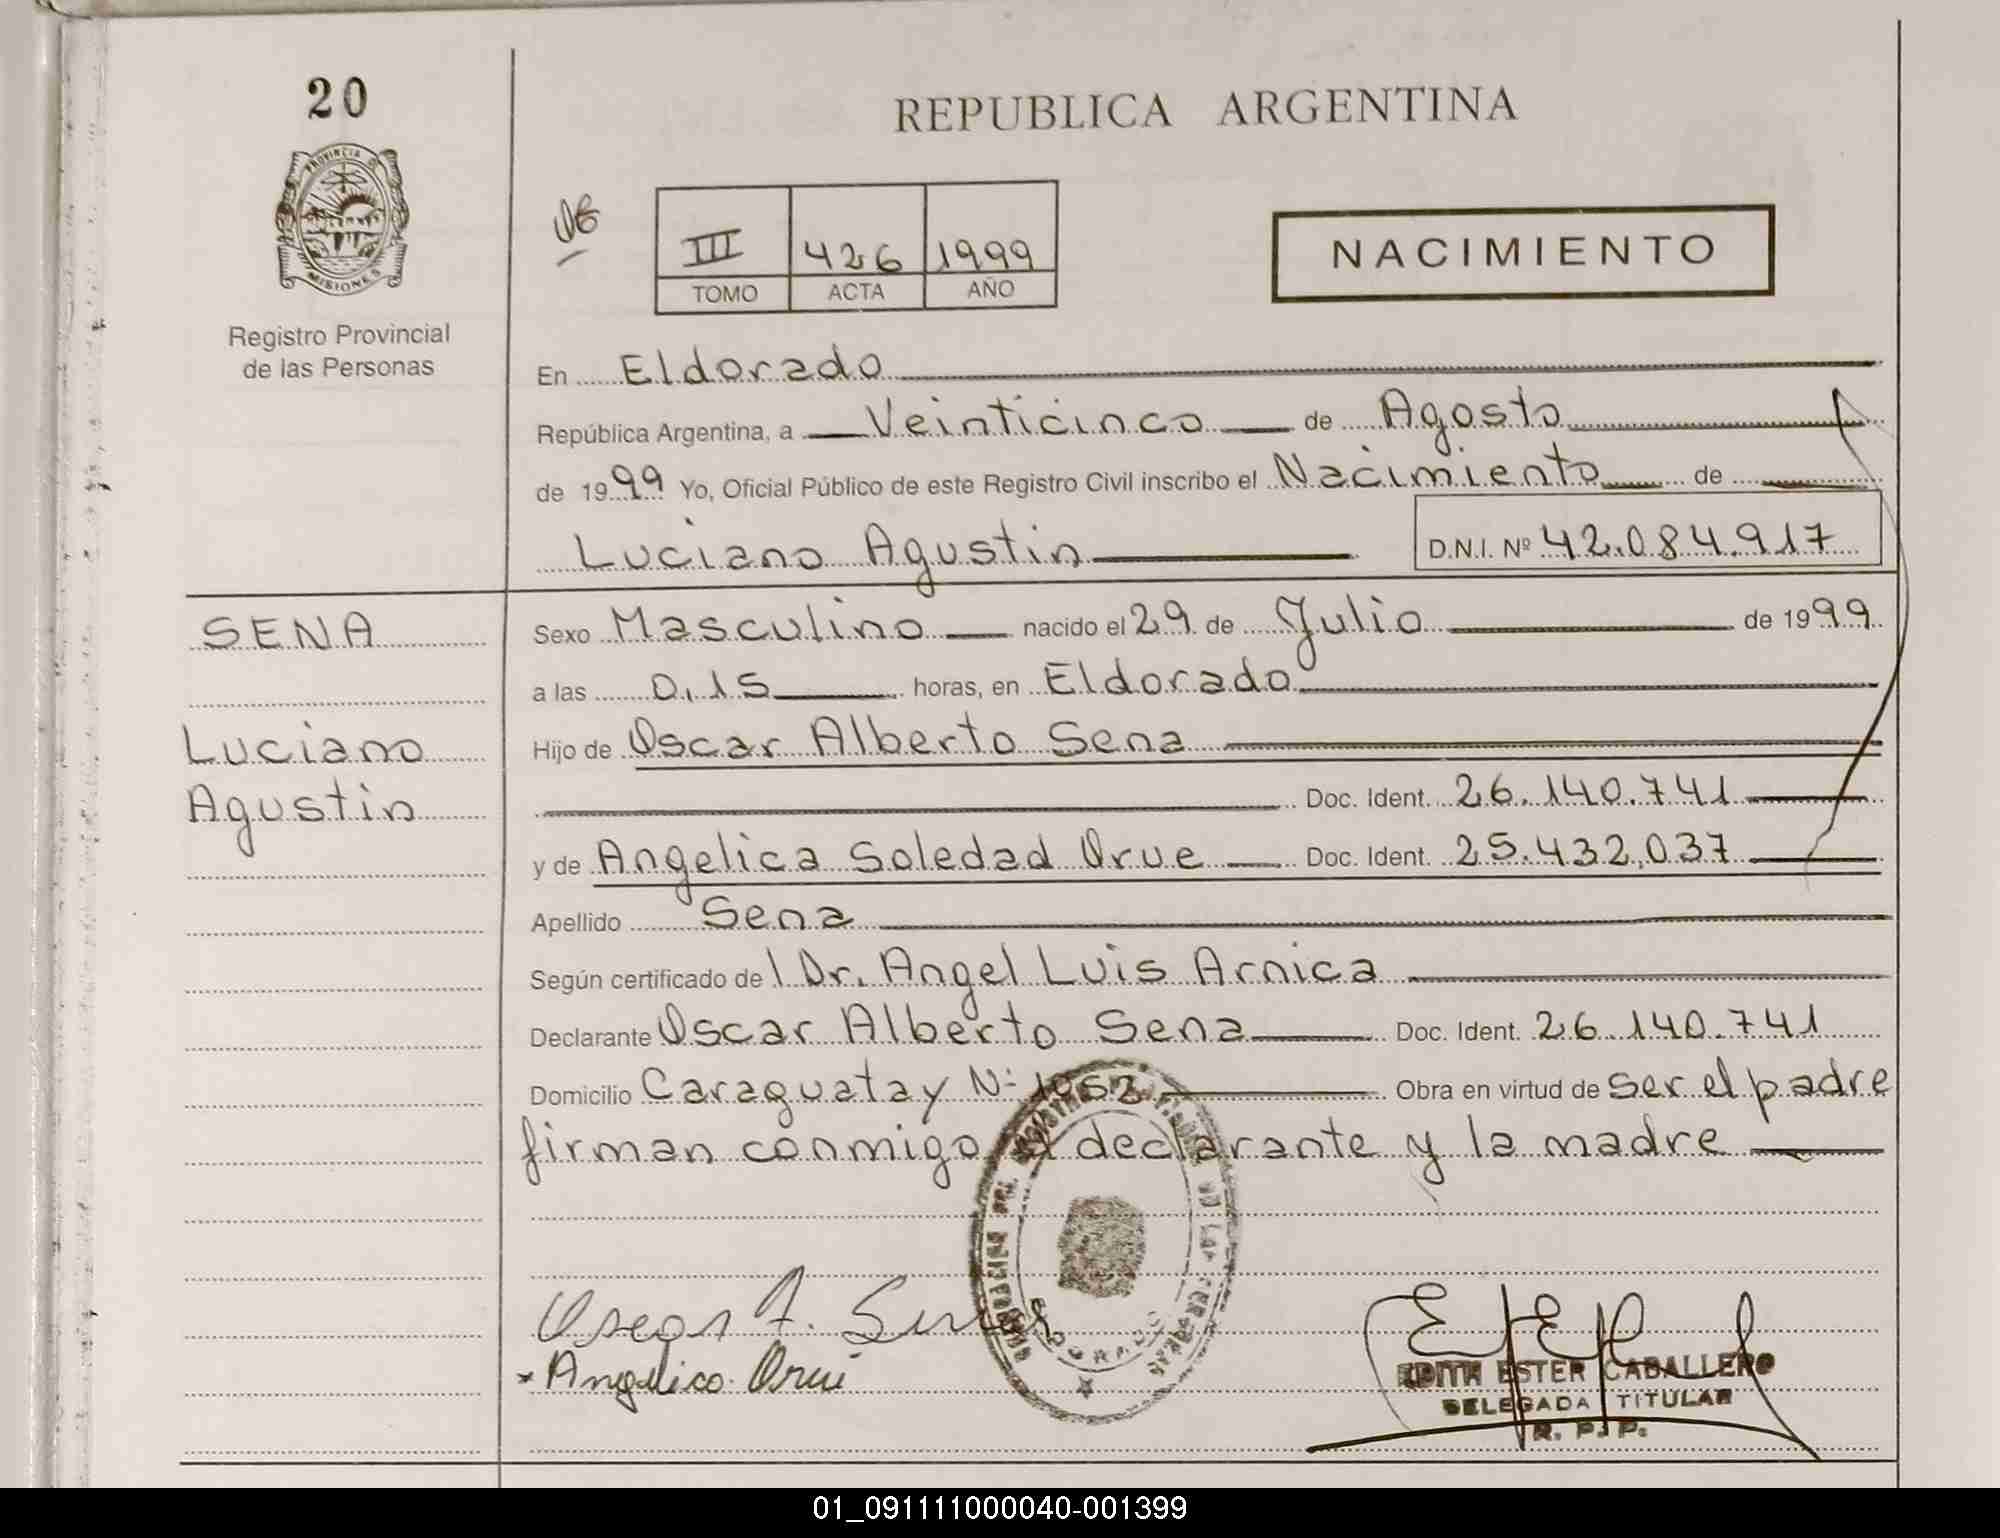 20
PROVINCIA DE
MISIONES
Registro Provincial
de las Personas
REPUBLICA ARGENTINA
III 426 1999
TOMO ACTA AÑO
NACIMIENTO
En Eldorado
República Argentina, a Veinticinco de Agosto
de 1999 Yo, Oficial Público de este Registro Civil inscribo el Nacimiento de
Luciano Agustin D.N.I. Nº 42.084.917
SENA
Luciano
Agustin
Sexo Masculino nacido el 29 de Julio de 1999
a las 0,15 horas, en Eldorado
Hijo de Oscar Alberto Sena
Doc. Ident. 26.140.741
y de Angelica Soledad Orue Doc. Ident. 25.432.037
Apellido Sena
Según certificado de l Dr. Angel Luis Arnica
Declarante Oscar Alberto Sena Doc. Ident. 26.140.741
Domicilio Caraguatay Nº 1052 Obra en virtud de ser el padre
firman conmigo el declarante y la madre
Oscar A. Sena
Angelica Orue
EDITH ESTER CABALLERO
DELEGADA TITULAR
R. P. P.
01_091111000040-001399